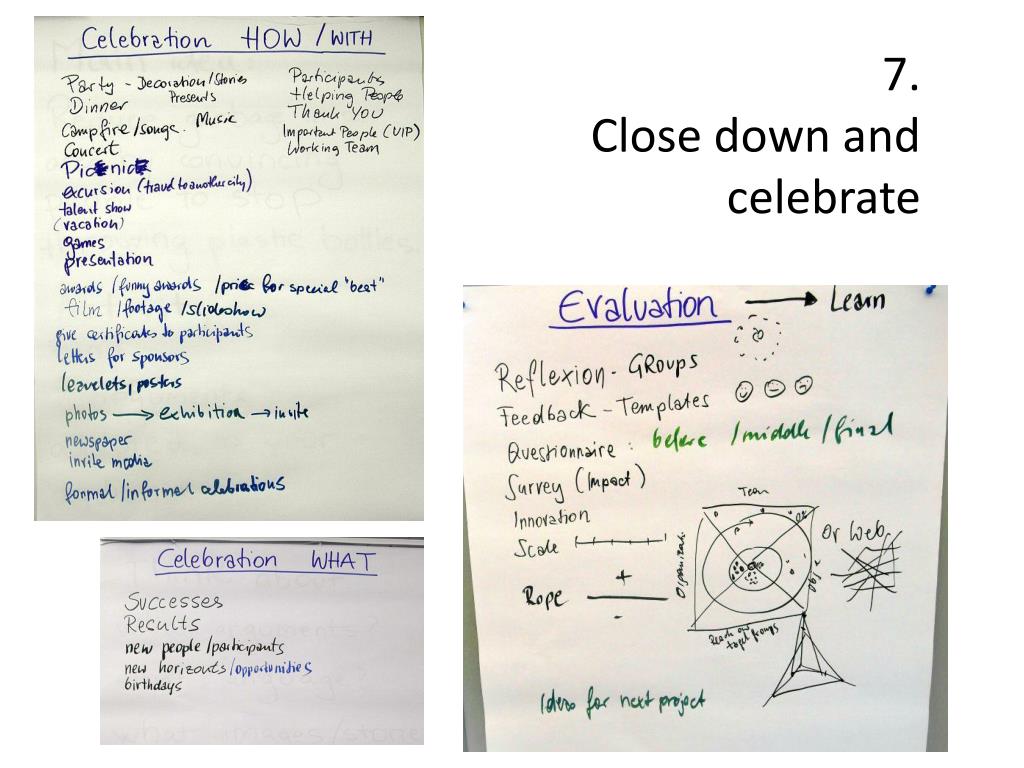 7.
Close down and
celebrate
Celebration HOW / WITH
Party - Decoration / Stories
Presents
Dinner
Campfire / songs. Music
Concert
Picknick
excursion (travel to another city)
talent show
(vacation)
games
presentation
Participants
Helping People
Thank You
Important People (VIP)
Working Team
awards / funny awards / prices for special "best"
film / footage / slideshow
give certificates to participants
letters for sponsors
leavelets, posters
photos → exhibition → invite
newspaper
invite media
formal / informal celebrations
Celebration WHAT
Successes
Results
new people / participants
new horizonts / opportunities
birthdays
Evaluation → Learn
Reflexion - GRoups
Feedback - Templates
Questionnaire : before / middle / final
Survey (Impact)
Innovation
Scale
Rope + -
Team
Or Web
Reach out
target groups
Ideas for next project